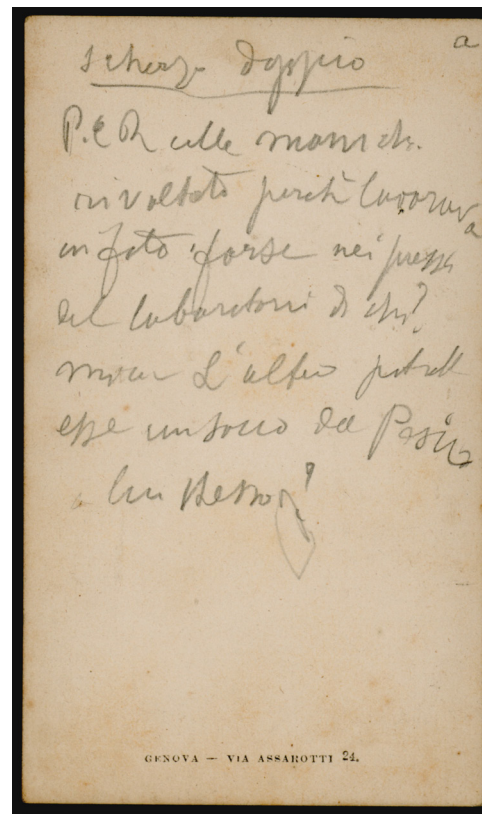 a
scherzo doppio
P. e R colle manich.
rivoltate perchè lavorava
in foto forse nei pressi
del laboratori di chi?
L'altro potrebb
esse un socio del
lui stesso?
GENOVA — VIA ASSAROTTI 24.